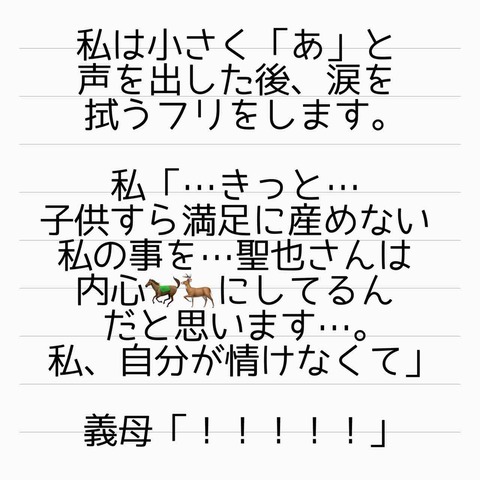 私は小さく「あ」と
声を出した後、涙を
拭うフリをします。
私「…きっと…
子供すら満足に産めない
私の事を…聖也さんは
内心🐎🦌にしてるん
だと思います…。
私、自分が情けなくて」
義母「！！！！！」